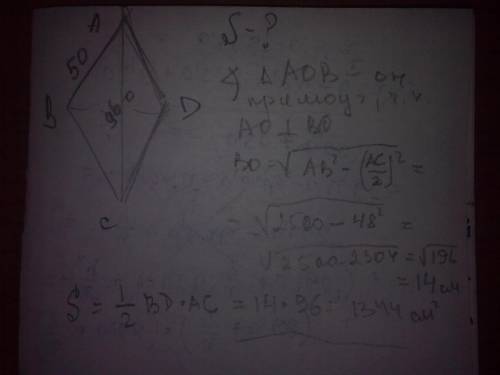 A
50
B
96
O
D
C
S - ?
∢ △ AOB - он
прямоуг., т.к.
AO ⊥ BD
BO = √(AB² - (AC/2)²) =
= √(2500 - 48²) =
√(2500 - 2304) = √196
= 14 см
S = 1/2 BD · AC = 14 · 96 = 1344 см²